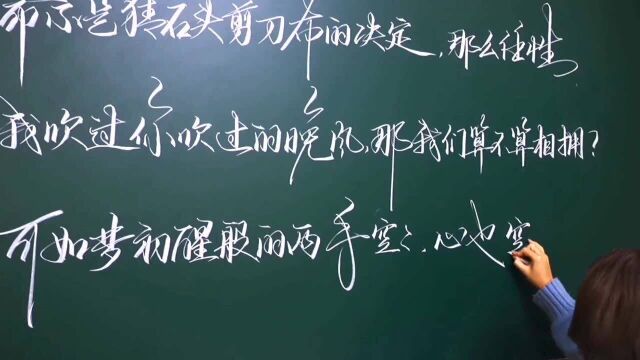 而不是猜石头剪刀布的决定,那么任性
我吹过你吹过的晚风,那我们算不算相拥?
可如梦初醒般的两手空空,心也空